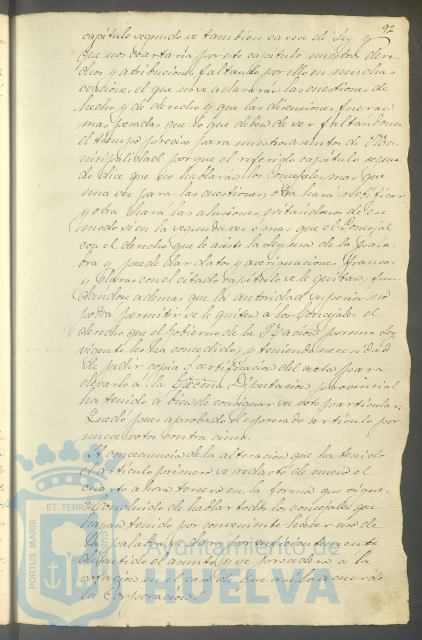 92
capitulo segundo se tambien carece de Ley y
que nos coartaria por esto capitulo nuestros dere-
chos y atribuciones faltando por ello en muchas
ocaciones el que no se aclararan las cuestiones de
hecho y de derecho y que las discusiones fueran
mas pesadas que lo que deben de ser faltandonos
el tiempo preciso para nuestro asuntos de Mu-
nicipalidad porque el referido capitulo segun-
do dice que no hablarán los Concejales mas que
una vez para las cuestiones, otra para rectificar
y otra para las alusiones, quitandonos de ese
modo si en la segunda vez o mas que el Concejal
con el derecho que le asiste la Ley usa de la pala-
bra y puede dar datos y averiguaciones francas
y claras con el citado capitulo se le quitan, fun-
dandose ademas que la autoridad superior no
podra permitir se le quiten a los Concejales el
derecho que el Gobierno de la Nacion por una Ley
vigente les ha concedido; y teniendo necesidad
de pedir copia o certificacion del acta para
elevarlo a la Excma Diputacion provincial
ha tenido a bien de consignar su voto particular.
Quedó pues aprobado el espresado articulo por
nueve votos contra cinco.
A concecuencia de la alteracion que ha tenido
el articulo primero se redactó de nuevo el
cuarto ahora tercero en la forma que sigue.
Concluido de hablar todos los concejales que
hayan tenido por conveniente hacer uso de
la palabra se dara por suficientemente
discutido el asunto y se procedera a la
votacion en el caso de que asi lo acuerde
la Corporacion.
ET TERRÆ
PORTUS MARIS
Ayuntamiento de
HUELVA